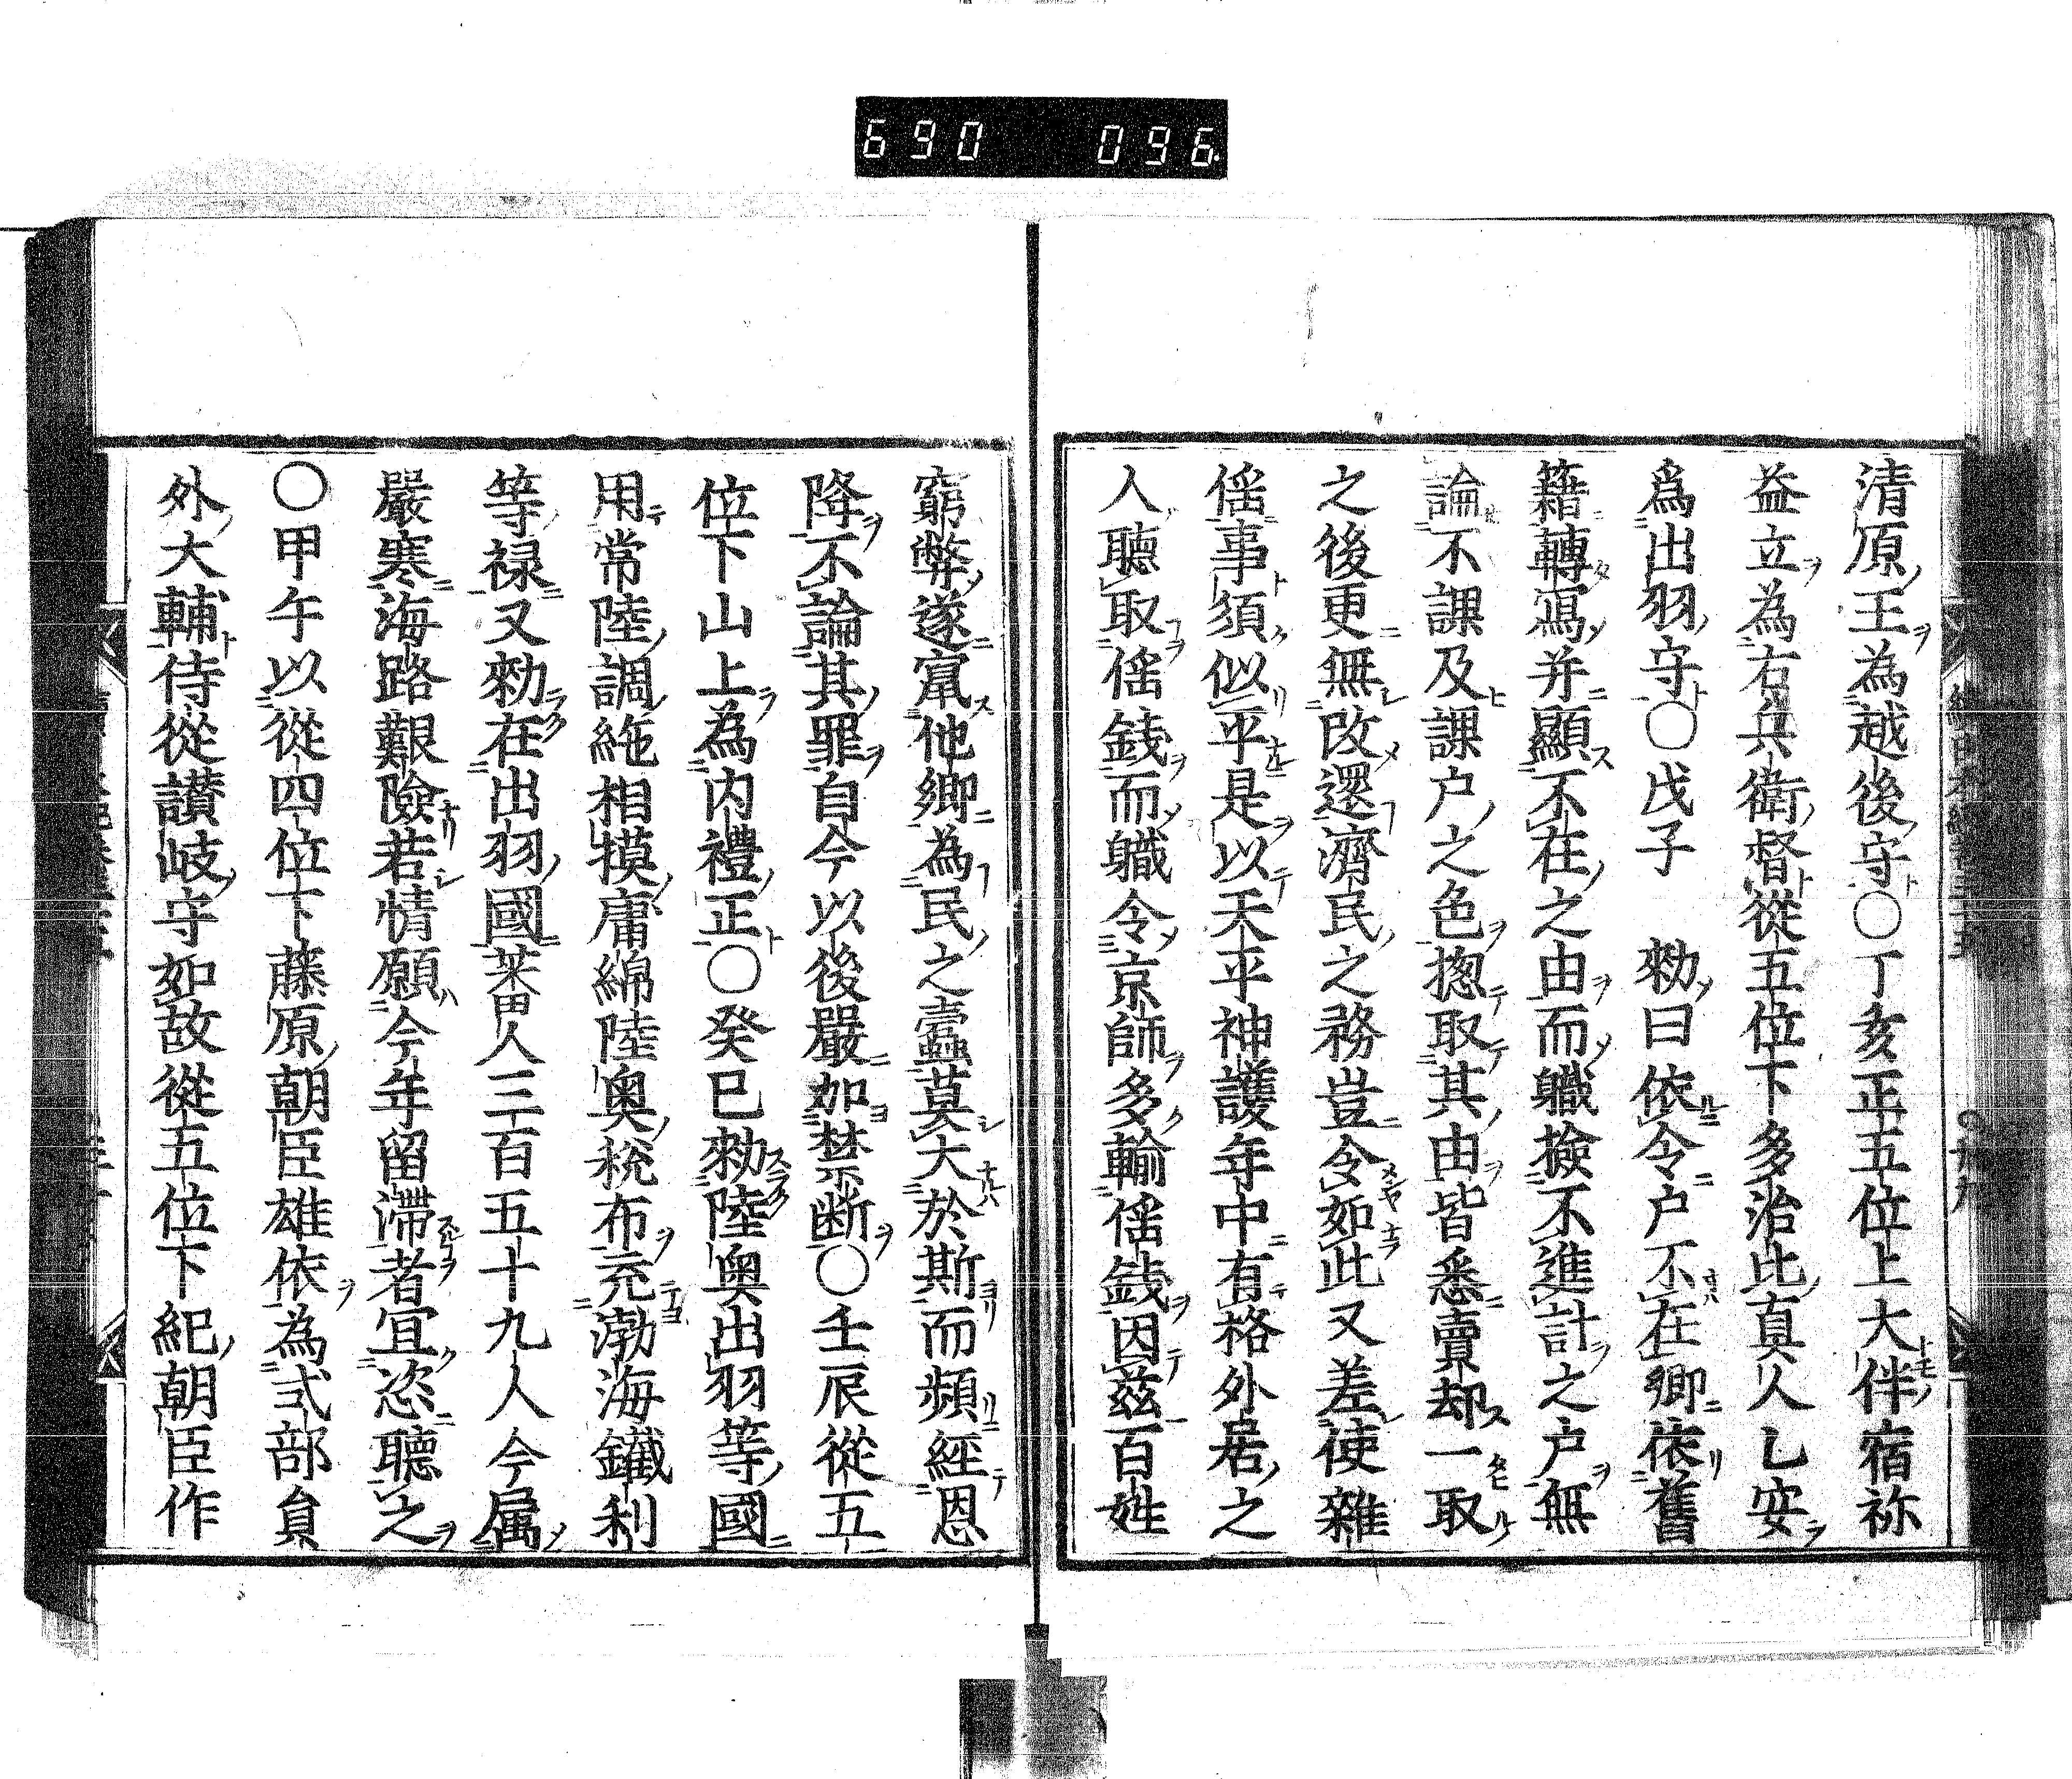 690 096
清原王為越後守〇丁亥正五位上大伴宿祢
益立為右兵衛督從五位下多治比真人乙安
爲出羽守〇戊子　勑曰依令户不在鄉依舊
籍轉寫并顯不在之由而職撿不進計之户無
論不課及課户之色惣取其由皆悉賣却一取
之後更無改還濟民之務豈令如此又差使雜
徭事須似平是以天平神護年中有格外居之
人聽取徭錢而職令京師多輸徭錢因茲百姓
窮弊遂竄他鄉為民之蠹莫大於斯而頻經恩
降不論其罪自今以後嚴加禁断〇壬辰從五
位下山上為内禮正〇癸巳勑陸奥出羽等國
用常陸調絁相摸庸綿陸奥税布充渤海鐵利
等禄又勑在出羽國蕃人三百五十九人今属
嚴寒海路艱險若情願今年留滯者宜恣聽之
〇甲午以從四位下藤原朝臣雄依為式部員
外大輔侍從讃岐守如故從五位下紀朝臣作